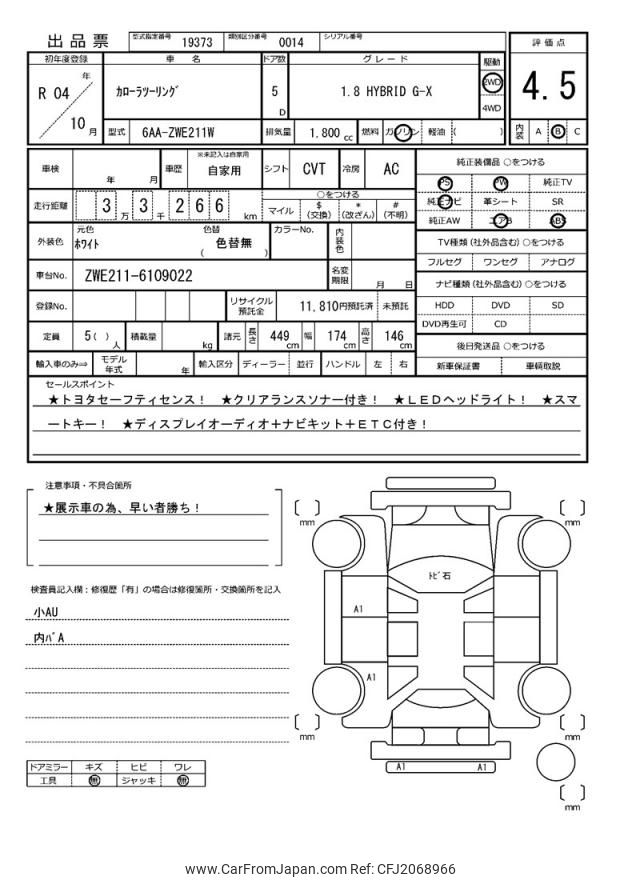 出品票 型式指定番号 19373 類別区分番号 0014 シリアル番号
評価点
4.5
内装 A B C
初年度登録 車名 ドア数 グレード 駆動
R 04 年 10 月
カローラツーリング 5 D 1.8 HYBRID G-X 2WD 4WD
型式 6AA-ZWE211W 排気量 1,800 cc 燃料 ガソリン 軽油 ( )
車検 年 月 車歴 ※未記入は自家用 自家用 シフト CVT 冷房 AC
走行距離 3 万 3 千 2 6 6 km
○をつける
マイル $(交換) *(改ざん) #(不明)
外装色 元色 ホワイト 色替 ( 色替無 ) カラーNo. 内装色
車台No. ZWE211-6109022 名変期限 月 日
登録No. リサイクル預託金 11,810円預託済 未預託
定員 5( ) 人 積載量 kg 諸元 長さ 449 cm 幅 174 cm 高さ 146 cm
輸入車のみ⇒ モデル年式 年 輸入区分 ディーラー 並行 ハンドル 左 右
純正装備品 ○をつける
PS PW 純正TV
純正ナビ 革シート SR
純正AW エアB ABS
TV種類 (社外品含む) ○をつける
フルセグ ワンセグ アナログ
ナビ種類 (社外品含む) ○をつける
HDD DVD SD
DVD再生可 CD
後日発送品 ○をつける
新車保証書 車輌取説
セールスポイント
★トヨタセーフティセンス! ★クリアランスソナー付き! ★LEDヘッドライト! ★スマ
ートキー! ★ディスプレイオーディオ+ナビキット+ETC付き!
注意事項・不具合箇所
★展示車の為、早い者勝ち!
検査員記入欄:修復歴「有」の場合は修復箇所・交換箇所を記入
小AU
内バA
ドアミラー キズ ヒビ ワレ
工具 無 ジャッキ 無
mm mm
トビ石
A1
A1
mm mm
A1 A1
mm
www.CarFromJapan.com Ref: CFJ2068966